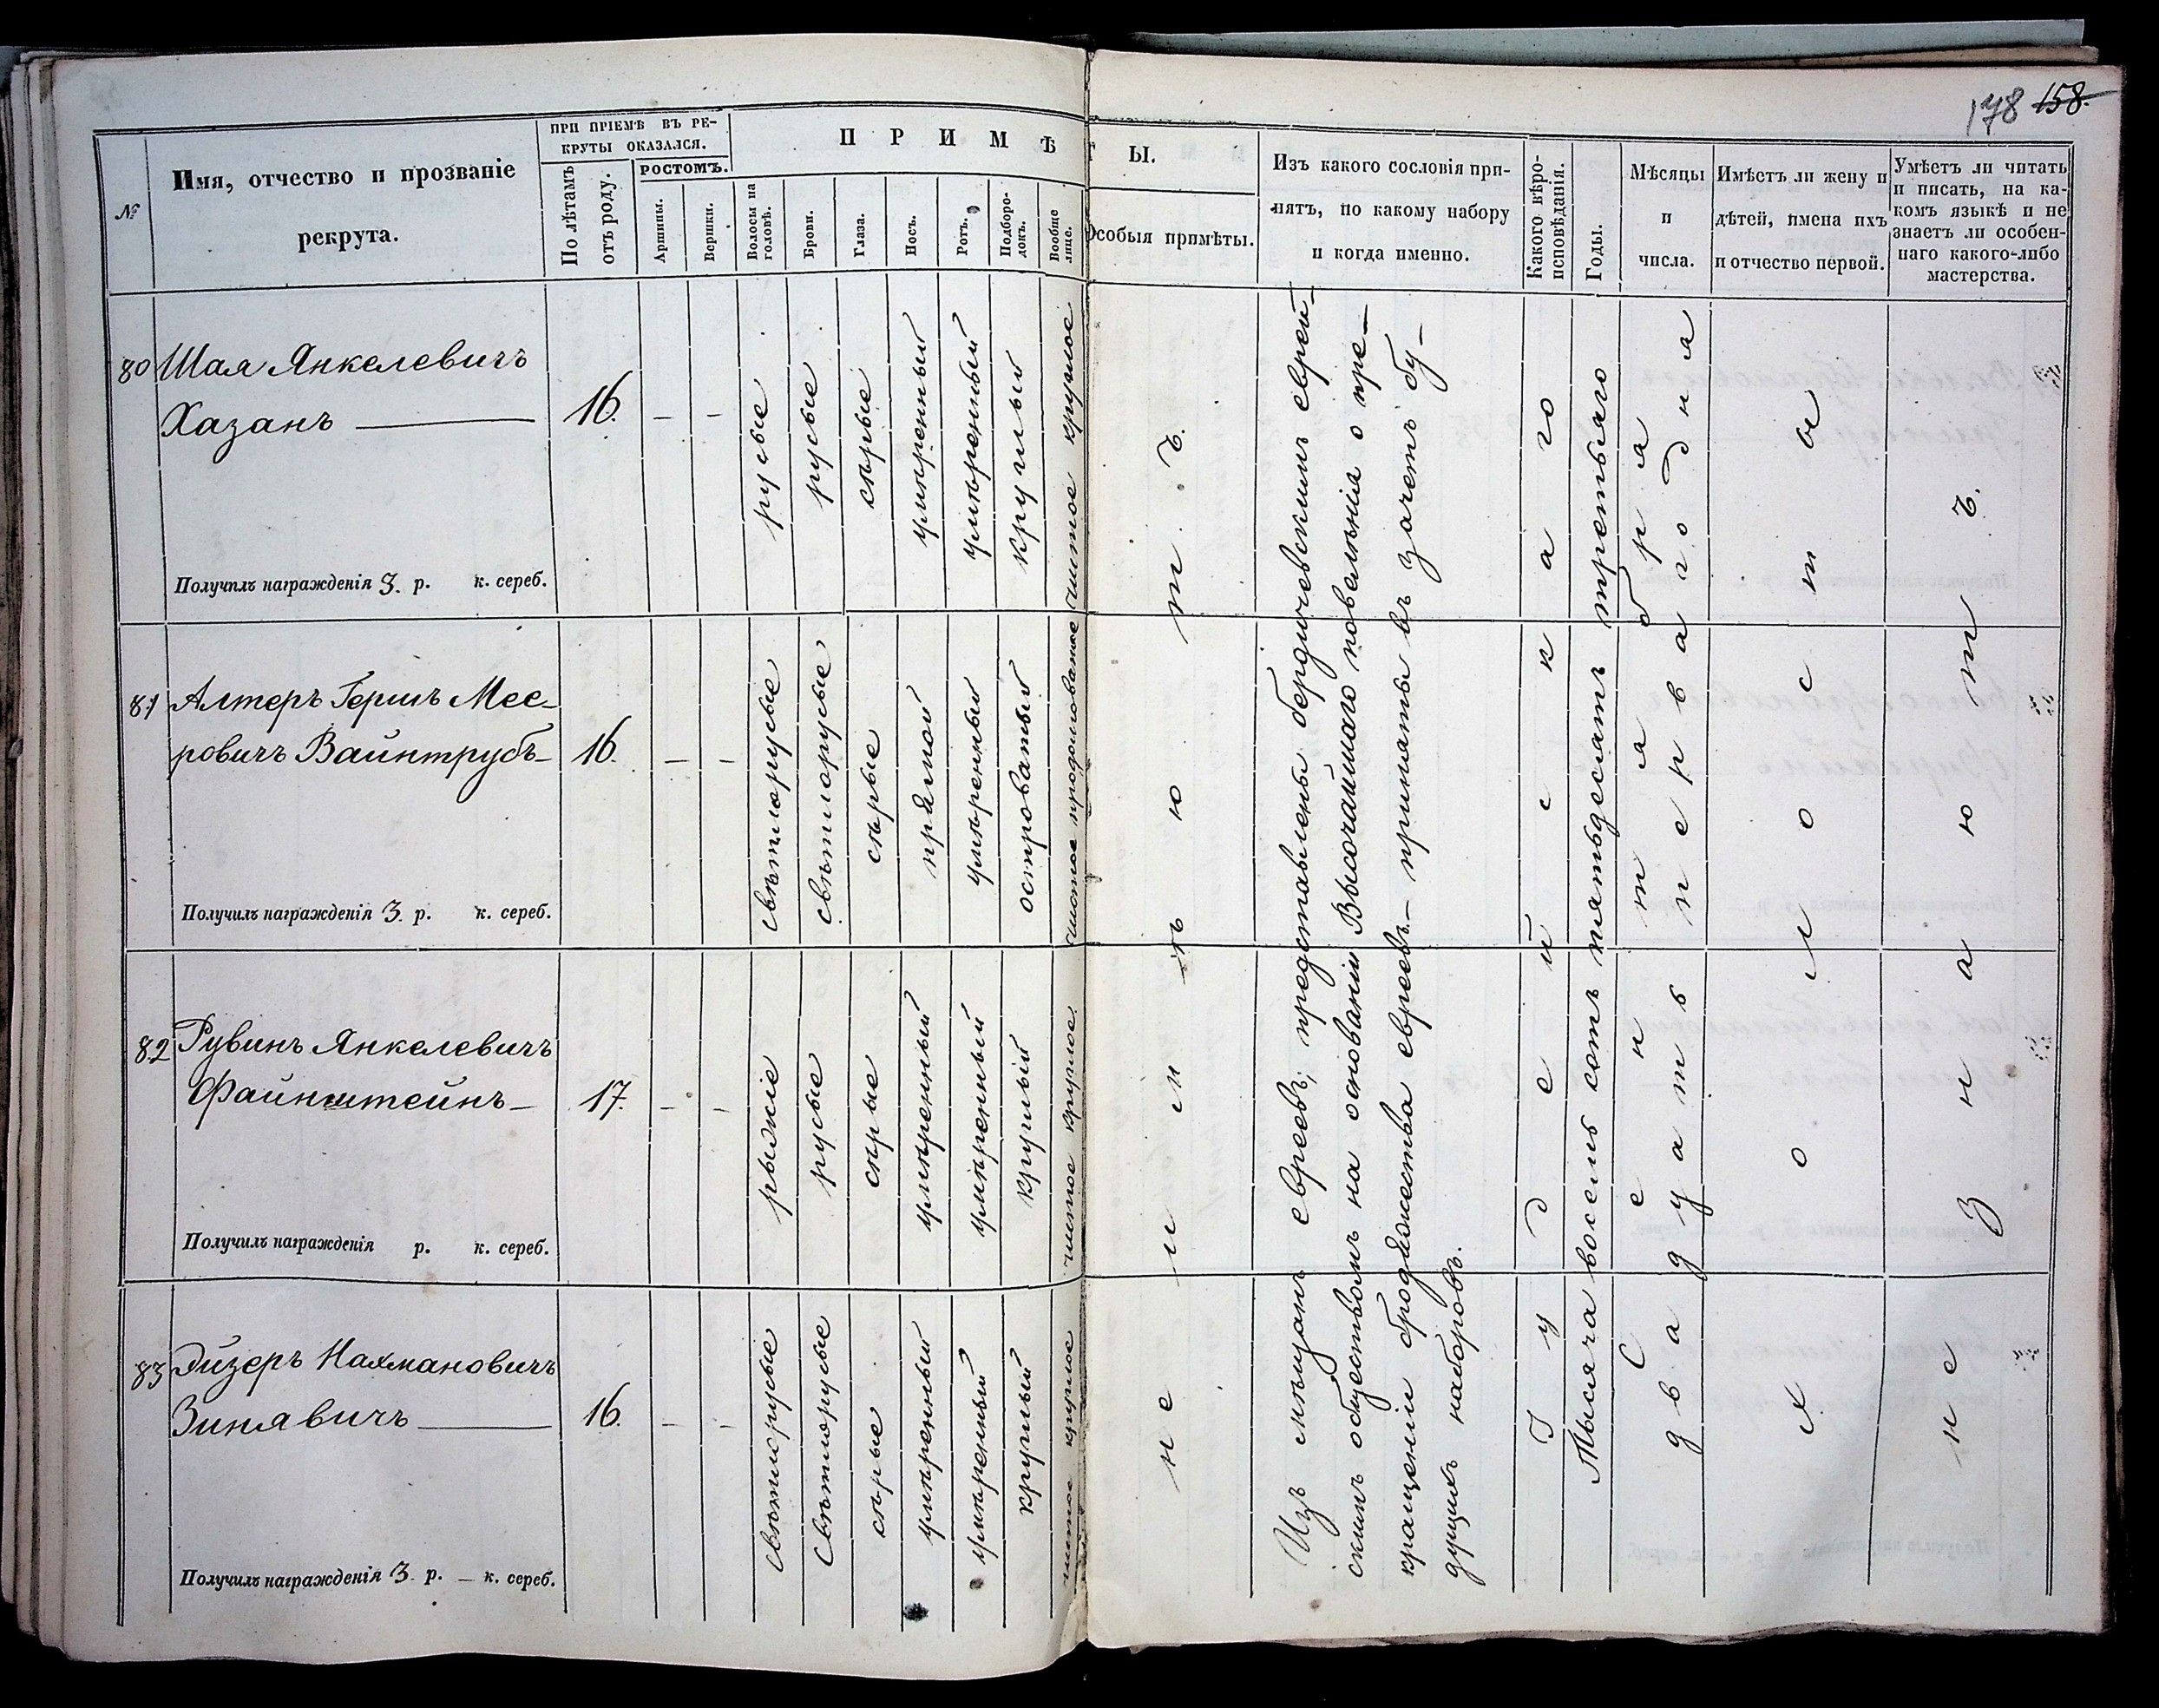 178 158.
№
Имя, отчество и прозваніе
рекрута.
ПРИ ПРІЕМѢ ВЪ РЕ-
КРУТЫ ОКАЗАЛСЯ.
По лѣтамъ
отъ роду.
РОСТОМЪ.
Аршины.
Вершки.
ПРИМѢТЫ.
Волосы на
головѣ.
Брови.
Глаза.
Носъ.
Ротъ.
Подборо-
докъ.
Вообще
лице.
Особыя примѣты.
Изъ какого сословія при-
нятъ, по какому набору
и когда именно.
Какого вѣро-
исповѣданія.
Годы.
Мѣсяцы
и
числа.
Имѣетъ ли жену и
дѣтей, имена ихъ
и отчество первой.
Умѣетъ ли читать
и писать, на ка-
комъ языкѣ и не
знаетъ ли особен-
наго какого-либо
мастерства.
80
Шая Янкелевичъ
Хазанъ
16.
русые
русые
сѣрые
умѣренный
умѣренный
круглый
чистое круглое
Получилъ награжденія 3. р. к. сереб.
81
Алтеръ Гершъ Мее-
ровичъ Вайнтрубъ
16.
свѣтлорусые
свѣтлорусые
сѣрые
прямой
умѣренный
островатый
чистое продолговатое
Получилъ награжденія 3. р. к. сереб.
82
Рувинъ Янкелевичъ
Файнштейнъ
17.
рыжіе
русые
сѣрые
умѣренный
умѣренный
круглый
чистое круглое
Получилъ награжденія р. к. сереб.
83
Эйзеръ Нахмановичъ
Зинявичъ
16.
свѣтлорусые
свѣтлорусые
сѣрые
умѣренный
умѣренный
круглый
чистое круглое
Получилъ награжденія 3. р. — к. сереб.
не имѣютъ.
Изъ мѣщанъ евреевъ; представлены бердичевскимъ еврей-
скимъ обществомъ на основаніи Высочайшаго повелѣнія о пре-
кращеніи бродяжества евреевъ — приняты въ зачетъ бу-
дущихъ наборовъ.
Іудейскаго
Тысяча восемь сотъ пятьдесятъ третьяго
Сентября
двадцать перваго дня
Холосты
не знаютъ.